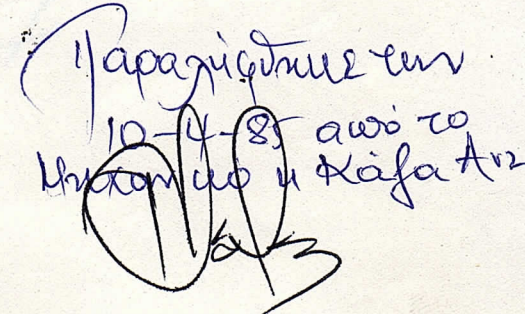 Παραλήφθηκε την
10-4-85 από το
Μηχανικό κ Κάζα Αντ